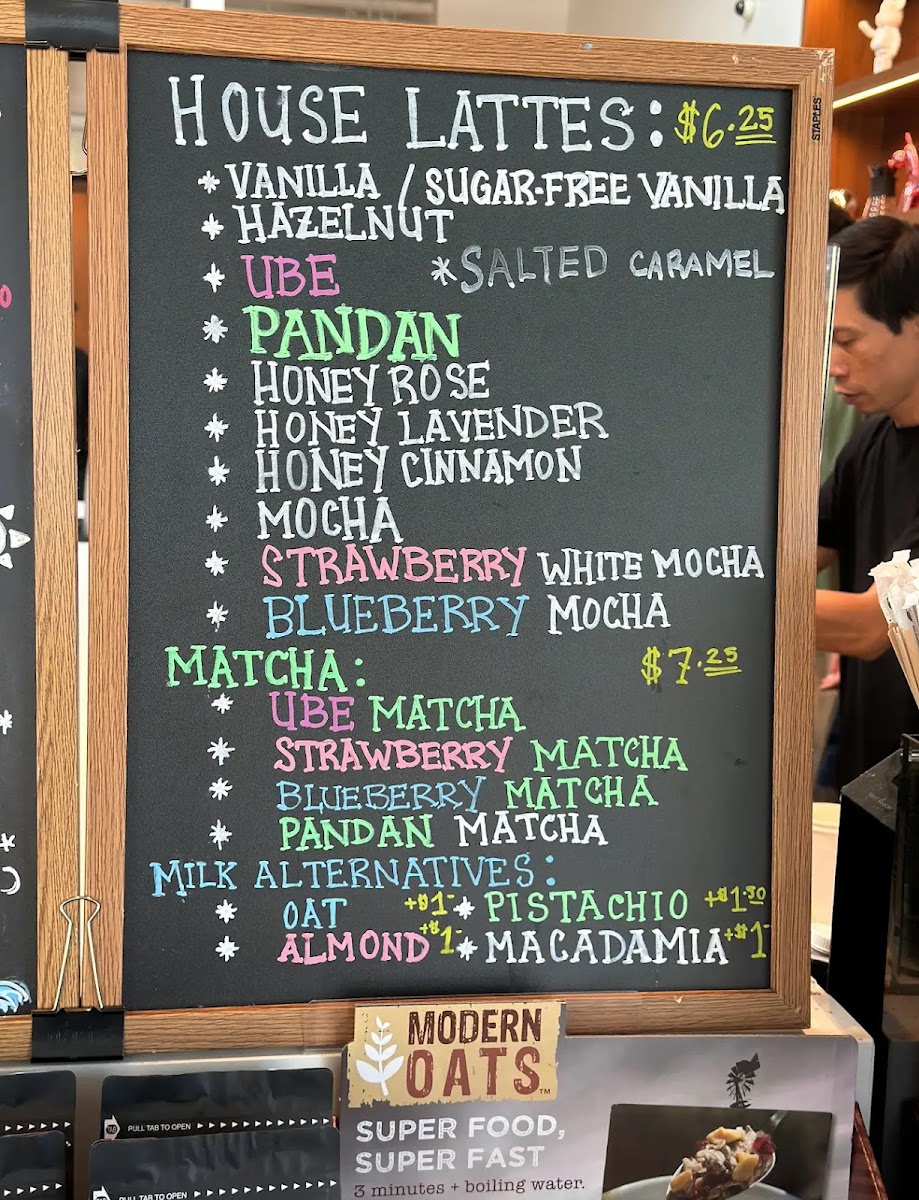 HOUSE LATTES: $6.25
* VANILLA / SUGAR-FREE VANILLA
* HAZELNUT
* UBE * SALTED CARAMEL
* PANDAN
* HONEY ROSE
* HONEY LAVENDER
* HONEY CINNAMON
* MOCHA
* STRAWBERRY WHITE MOCHA
* BLUEBERRY MOCHA
MATCHA: $7.25
* UBE MATCHA
* STRAWBERRY MATCHA
* BLUEBERRY MATCHA
* PANDAN MATCHA
MILK ALTERNATIVES:
* OAT +$1- * PISTACHIO +$1.50
* ALMOND +$1- * MACADAMIA +$1-
STAPLES
MODERN
OATS™
SUPER FOOD,
SUPER FAST
3 minutes + boiling water.
TAB PULL TAB TO OPEN
TAB PULL TAB TO OPEN